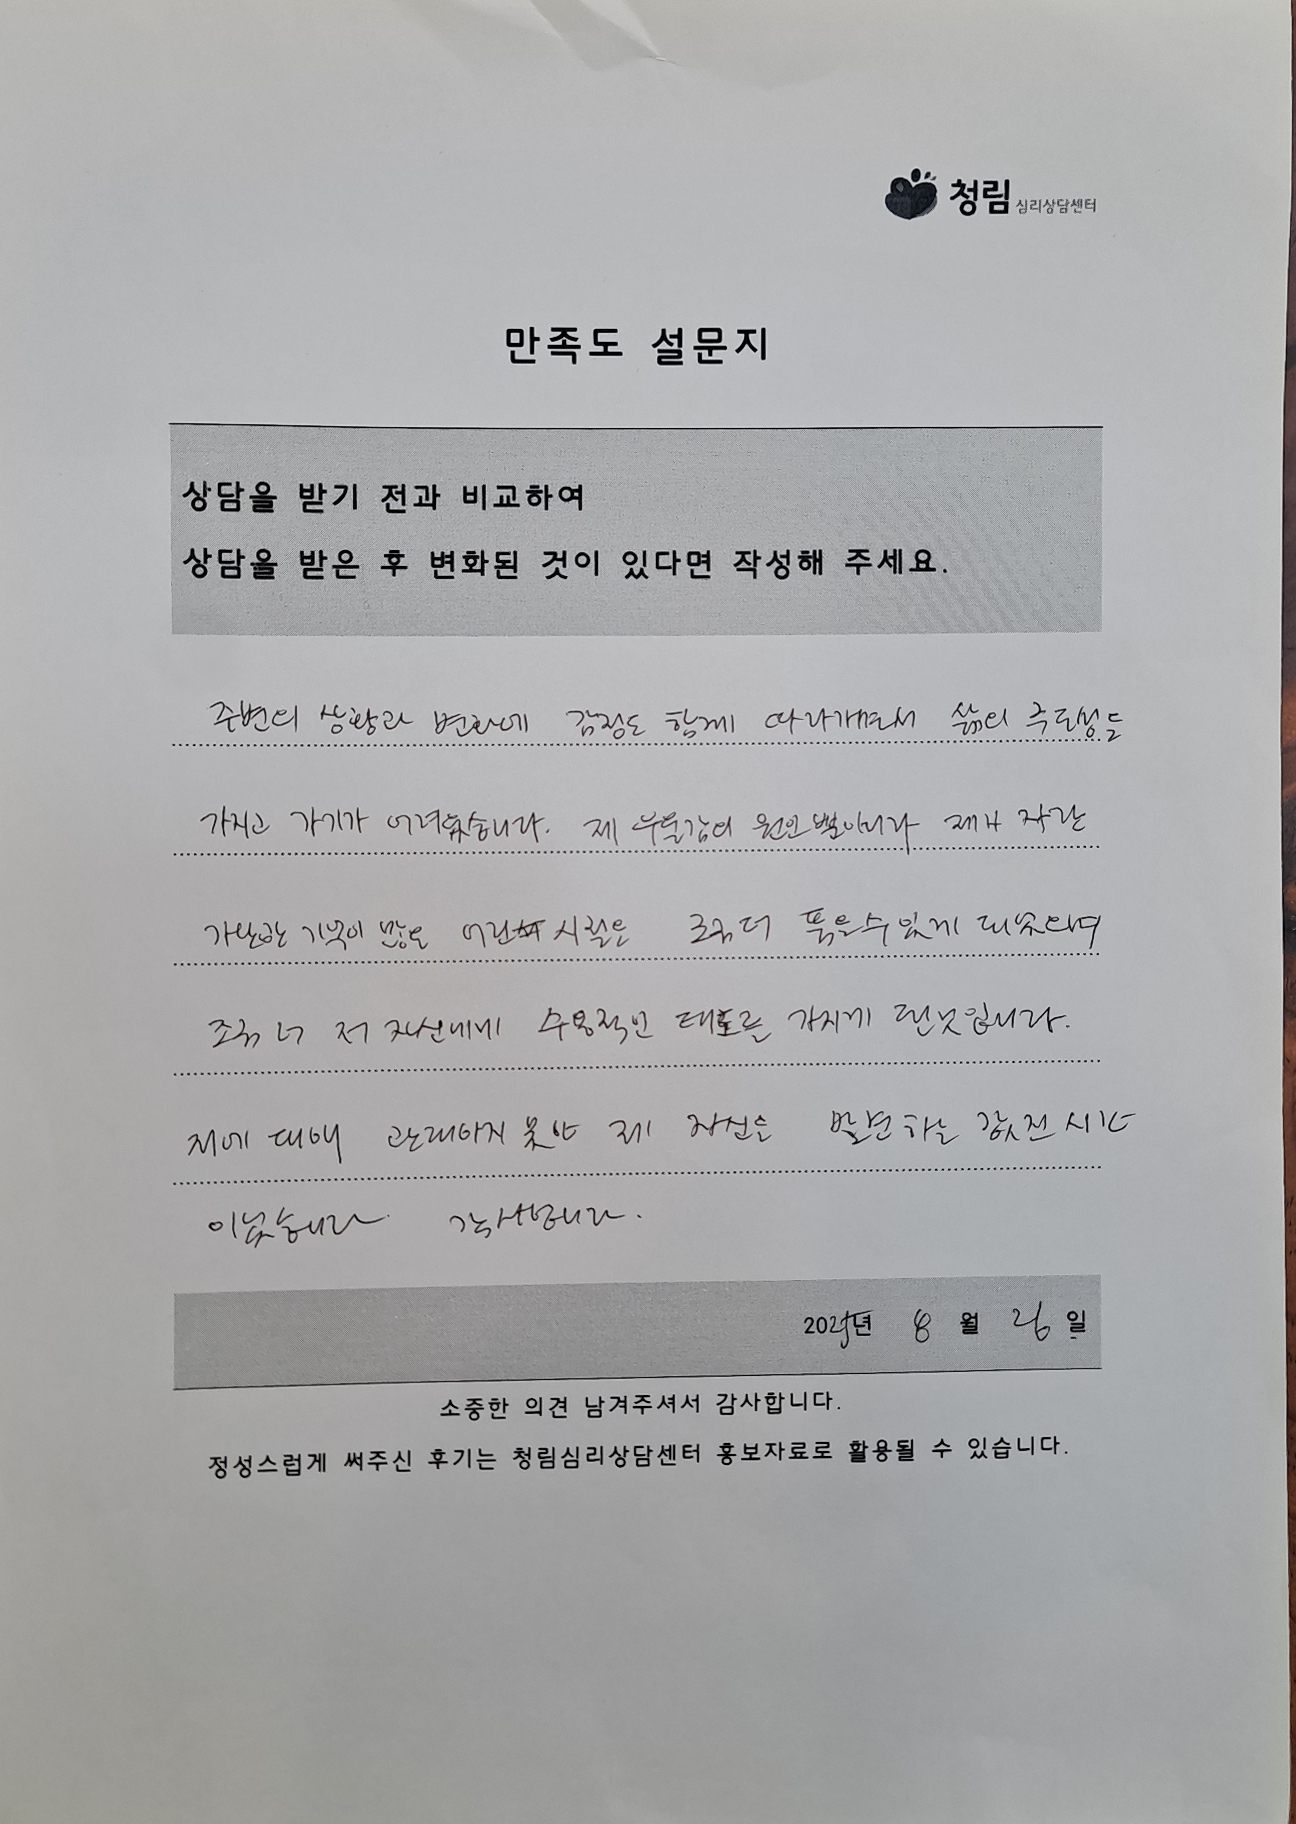 청림 심리상담센터
만족도 설문지
상담을 받기 전과 비교하여
상담을 받은 후 변화된 것이 있다면 작성해 주세요.
주변의 상황과 변화에 감정도 함께 따라가면서 삶의 주도성을
가지고 가기가 어려웠습니다. 제 우울감의 원인뿐아니라 제가
가난한 기억이 많은 어린 시절을 조금 더 품을수 있게 되었으며
조금 더 저 자신에게 수용적인 태도를 가지게 된것입니다.
저에 대해 관대하지 못한 제 자신을 발견하는 값진 시간
이었습니다. 감사합니다.
2025년 8 월 26 일
소중한 의견 남겨주셔서 감사합니다.
정성스럽게 써주신 후기는 청림심리상담센터 홍보자료로 활용될 수 있습니다.